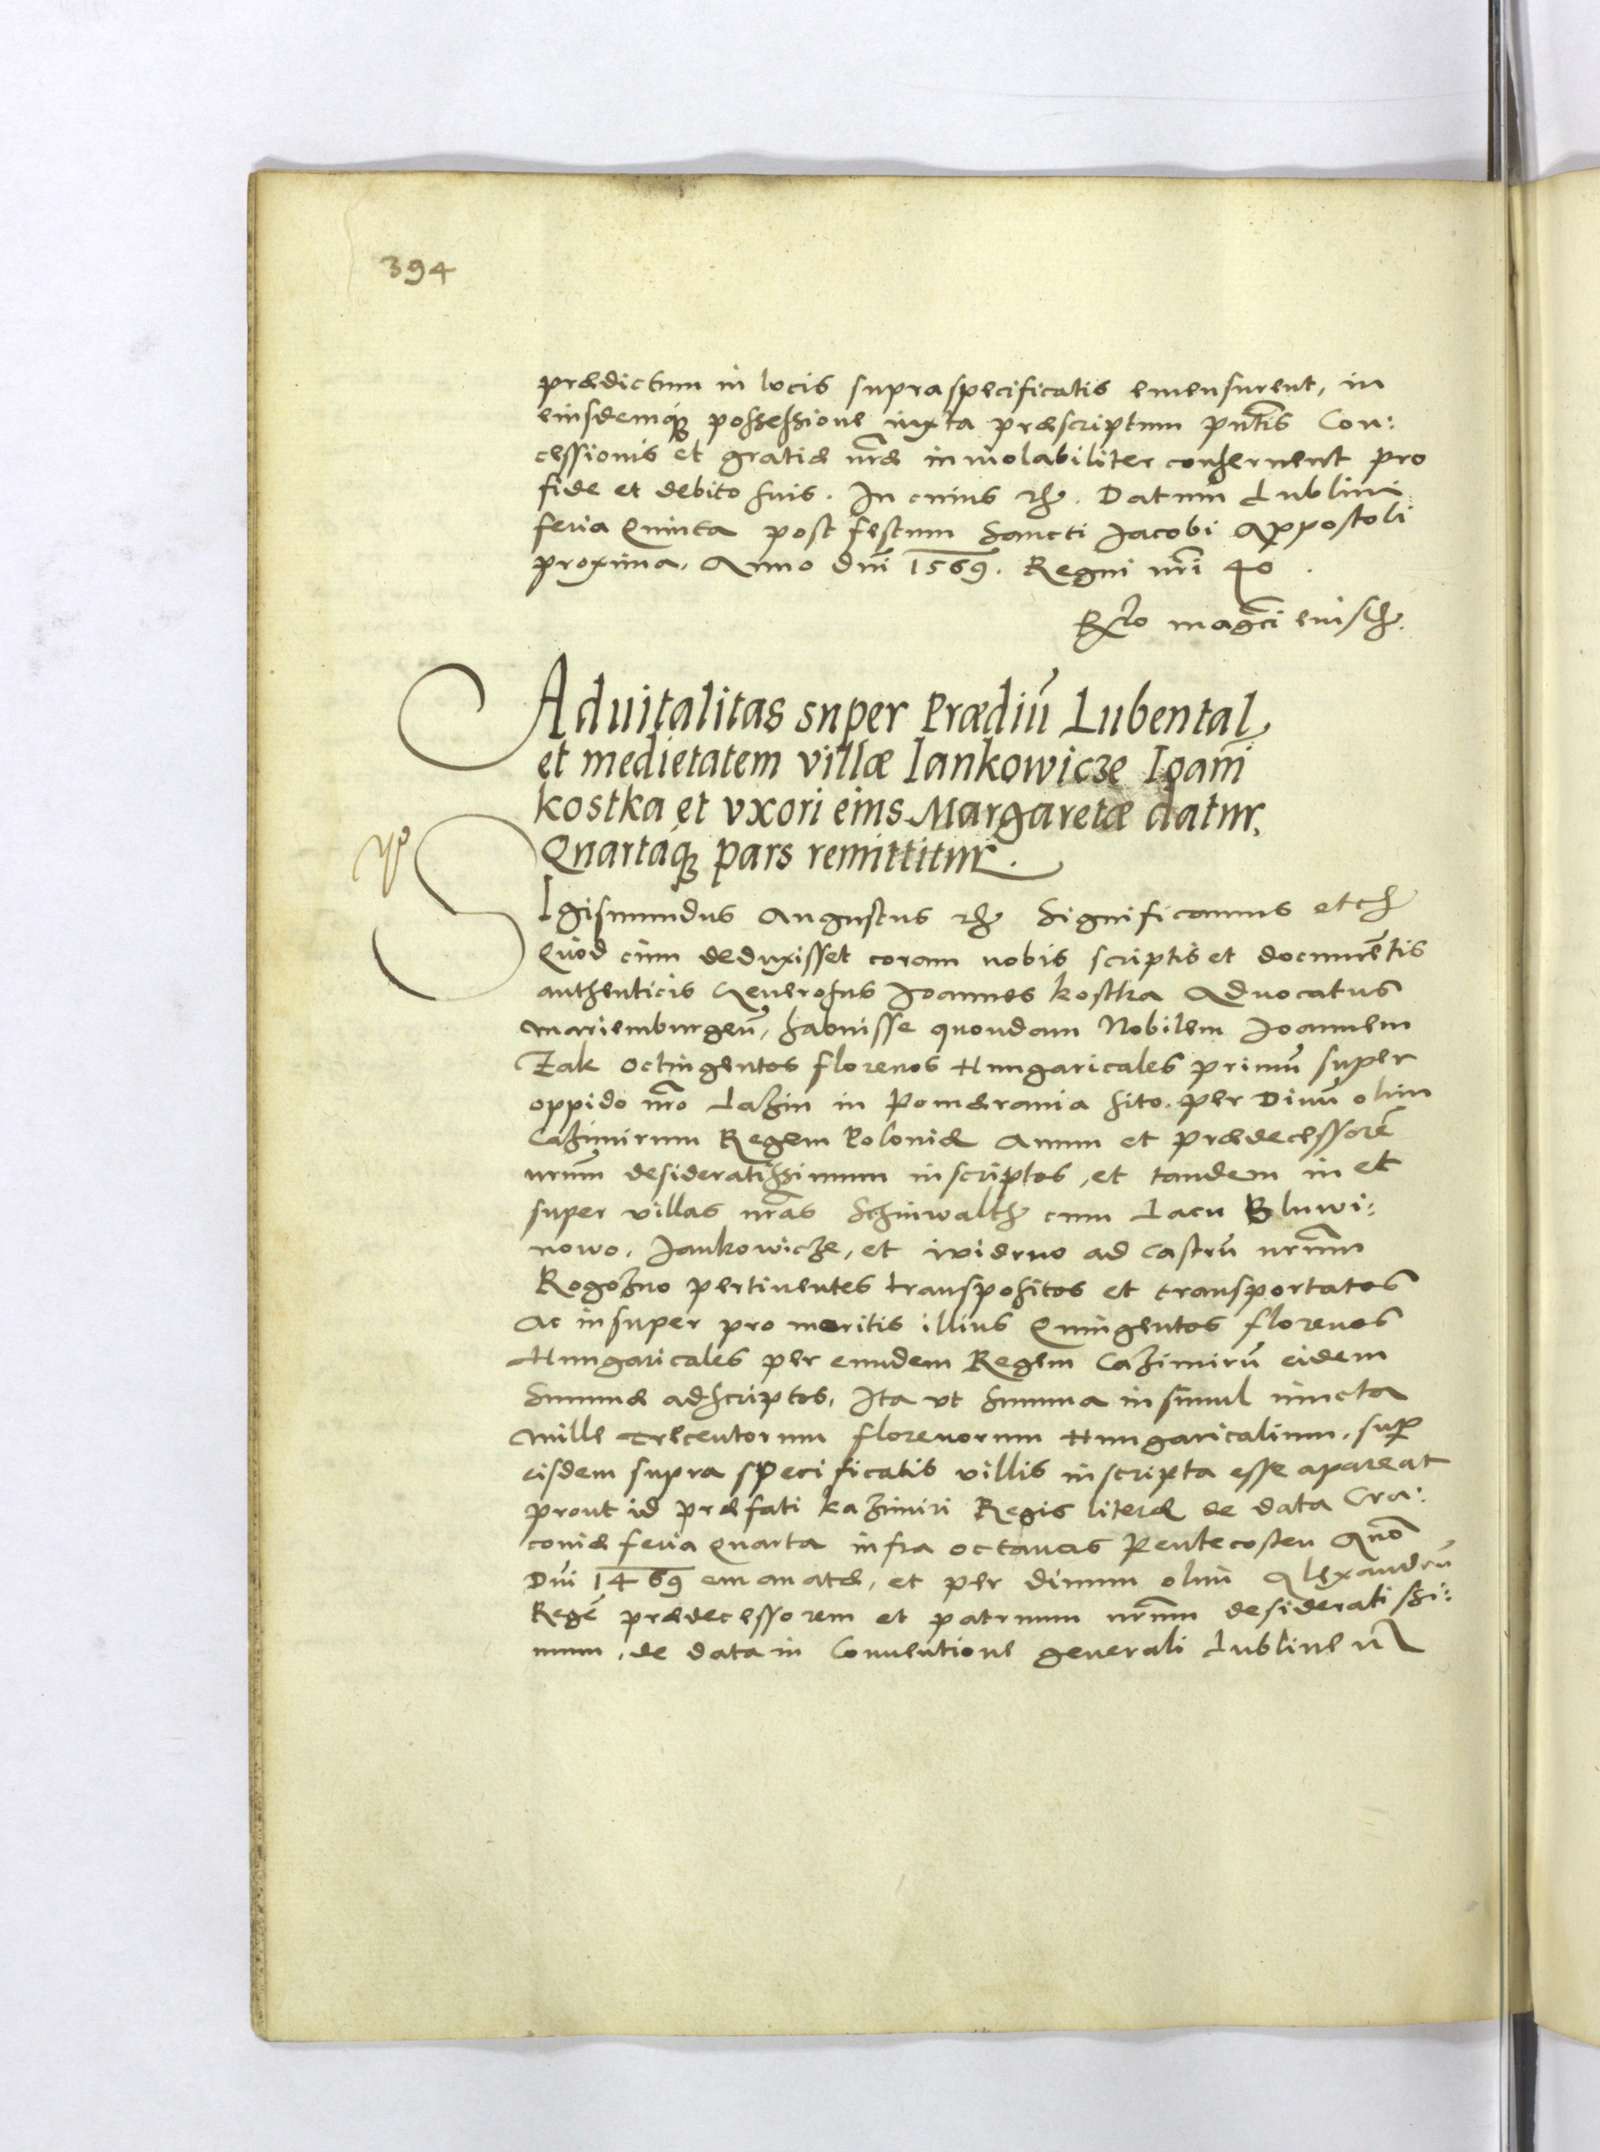 394
prædictum in locis supraspecificatis emensurent, in
eiusdemq possessione iuxta præscriptum pñtis Con:
cessionis et gratiæ nrã inviolabiliter conservent pro
fide et debito suis. In cuius rei. Datum Lublini
feria Quinta post festum Sancti Jacobi Appostoli
proxima. Anno dñi 1569. Regni nri 40.
Rlõ magci eiusdem.
Advitalitas super Prædiũ Lubental
et medietatem villæ Iankowicze Ioañi
kostka et vxori eius Margaretæ datur,
Quartaq pars remittitur.
SIgismundus Augustus etc Significamus etc
Quod cum deduxisset coram nobis scriptis et documẽtis
authenticis Generosus Joannes kostka Advocatus
Mariemburgeñ, habuisse quondam Nobilem Joannem
Zak octingentos florenos Hungaricales primũ super
oppido nro Lazin in Pomerania sito. per Divũ olim
Cazimirum Regem Poloniæ Avum et prædecessorẽ
nrum desideratissimum inscriptos, et tandem in et
super villas nras Schinwalth cum Lacu Bluwi:
nowo, Jankowicze, et Widrno ad Castrũ nrum
Rogozno pertinentes transpositos et transportatos
Ac insuper pro meritis illius Quingentos florenos
Hungaricales per eundem Regem Cazimirũ eidem
Summæ adscriptos, Ita ut Summa insimul iuncta
Mille Trecentorum florenorum Hungaricalium, sup
eisdem supra specificatis villis inscripta esse apareat
prout id præfati kazimiri Regis literæ de data Cra:
coviæ feria Quarta infra octavas Pentecosten Anõ
Dñi 1469 emanatæ, et per divum olim Alexandrũ
Regẽ prædecessorem et patruum nrum desideratissi:
mum, de data in Conventione generali Lublineñ